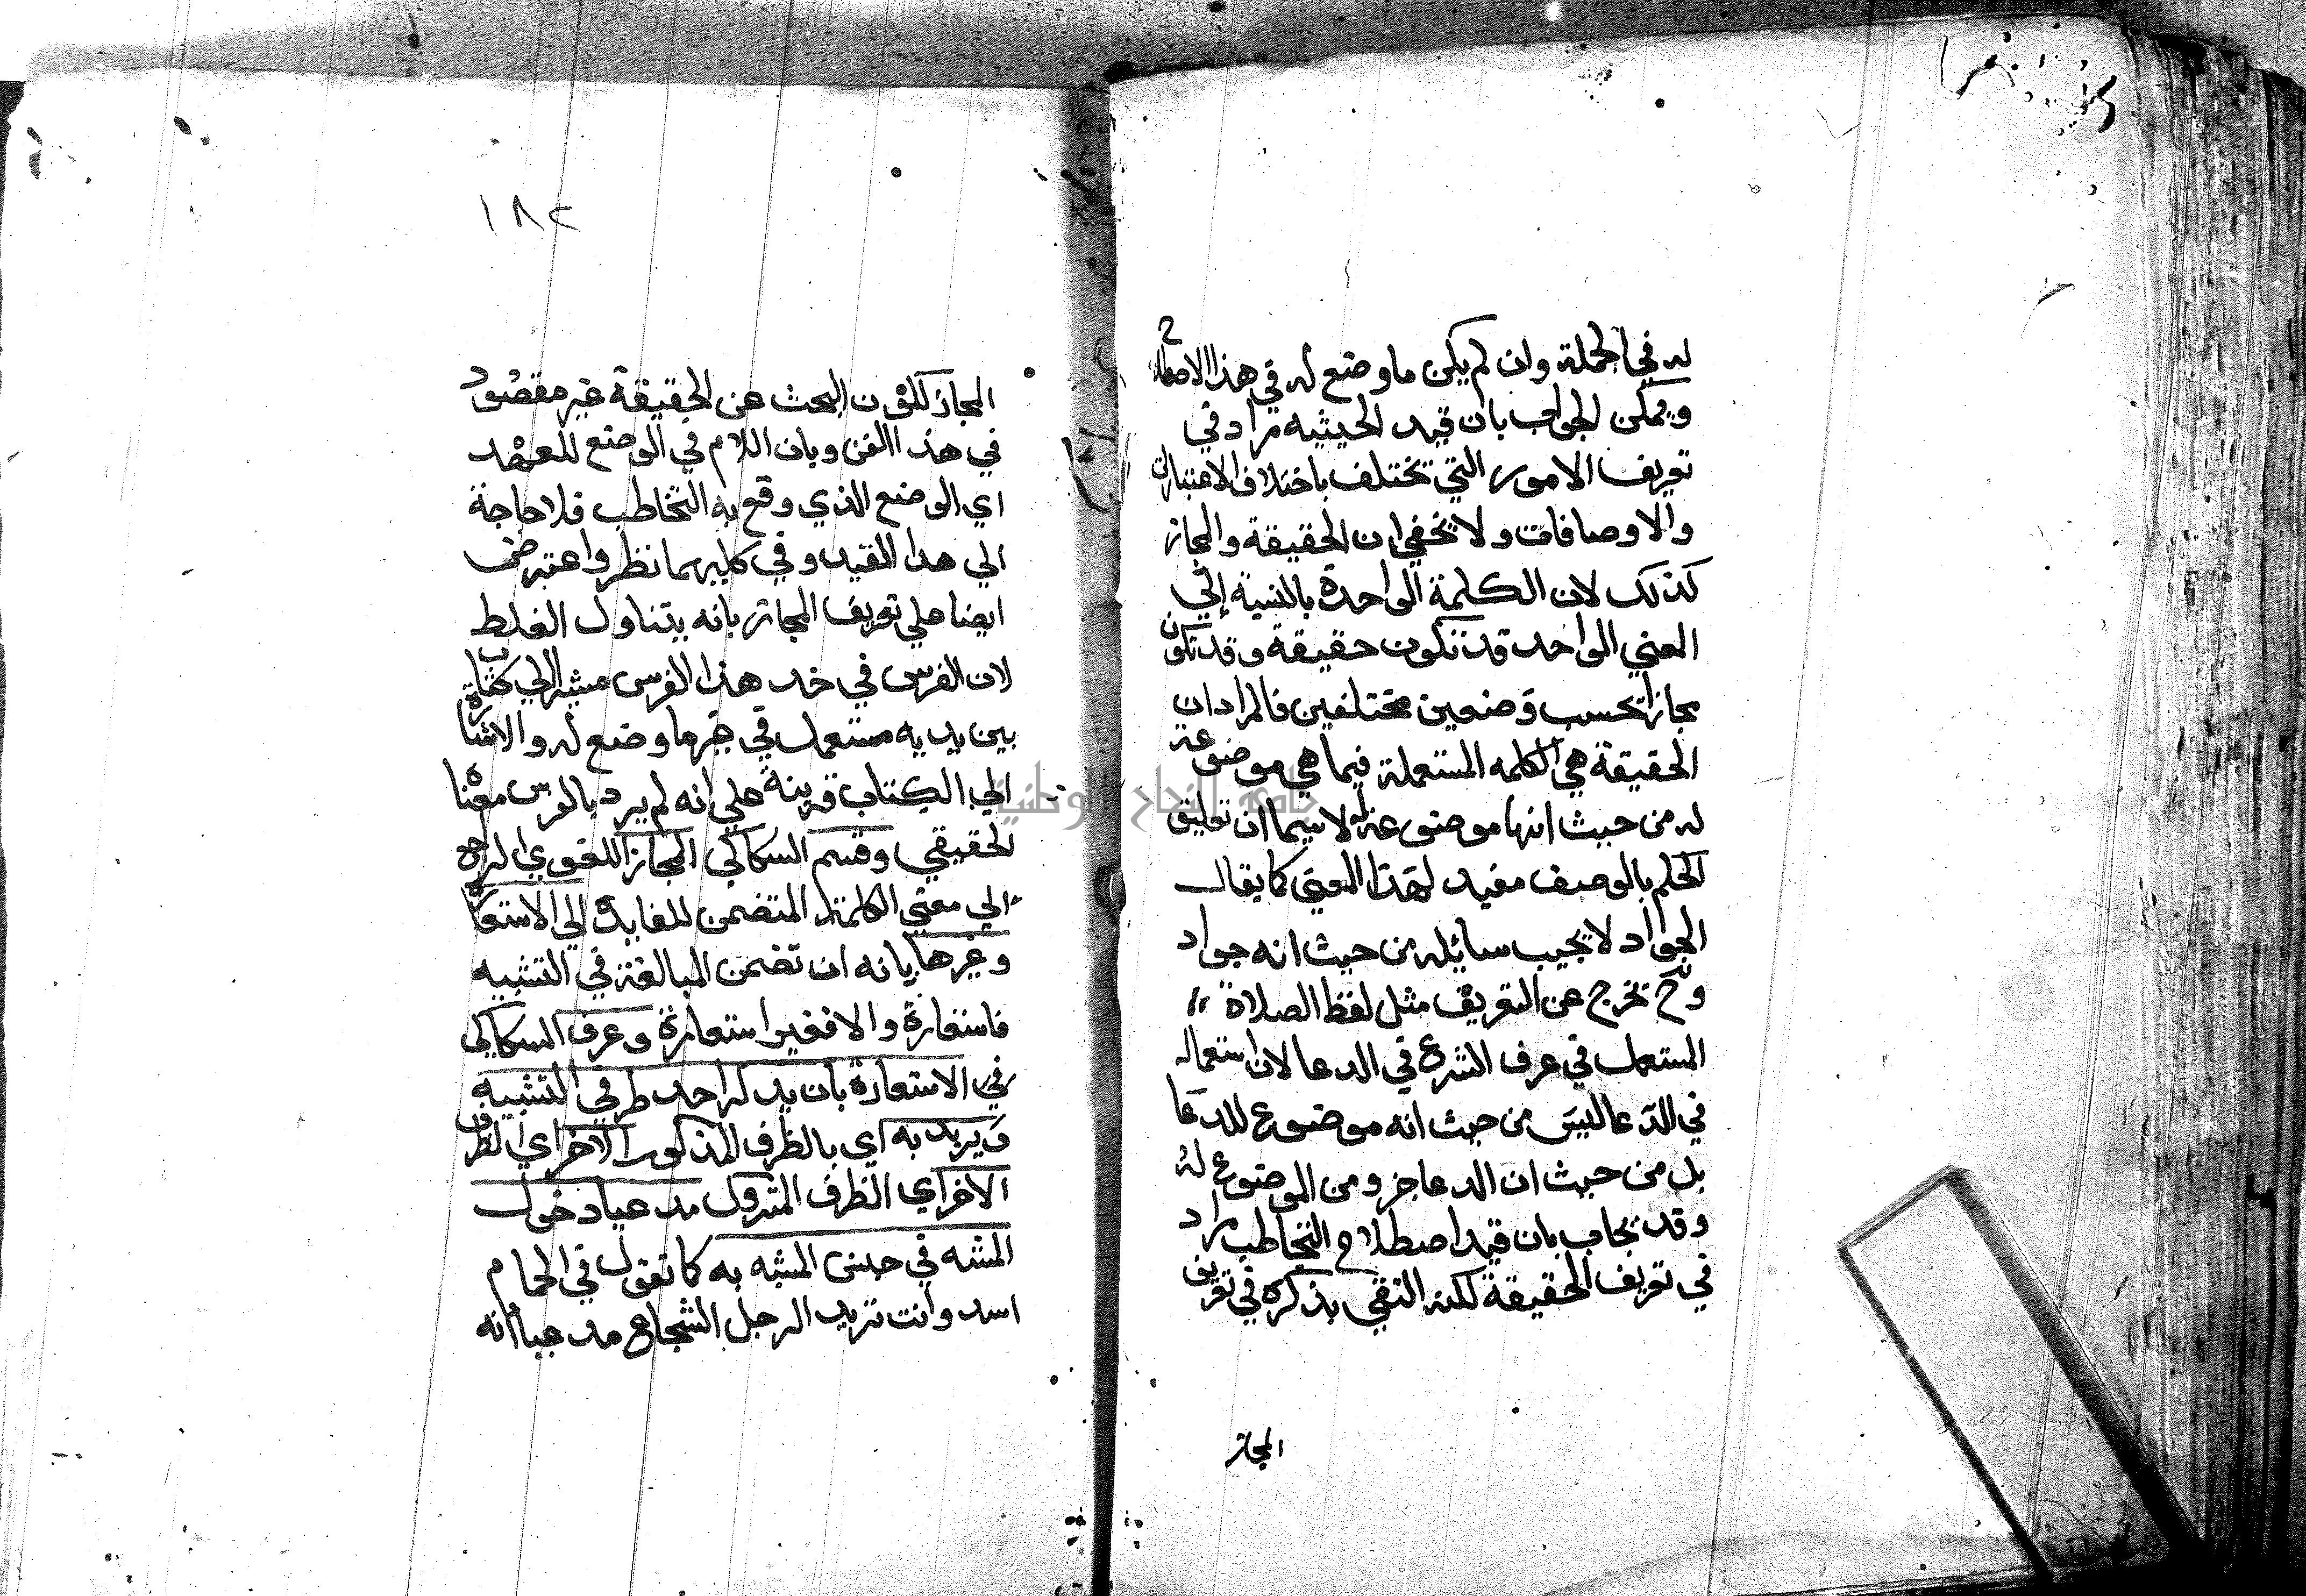 له في الجملة وان لم يكن ما وضع له في هذا الاصطلاح
ويمكن الجواب بان قيد الحيثيه مراد في
تعريف الامور التي تختلف باختلاف الاعتبارات
والاوضافات ولا يخفي ان الحقيقة والمجاز
كذلك لان الكلمة الواحدة بالنسبة إلي
المعني الواحد قد تكون حقيقة وقد تكون
مجازا بحسب وضعين مختلفين فالمراد ان
الحقيقة هي الكلمه المستعملة فيما هي موضوعة
له من حيث انها موضوعة له لا سيما ان تعليق
الحكم بالوصف مفيد لهذا المعني كما يقال
الجواد لا يخيب سايله من حيث انه جواد
وح يخرج عن التعريف مثل لفظ الصلاة
المستعمل في عرف الشرع في الدعا لان استعماله
في الدعا ليس من حيث انه موضوع للدعا
بل من حيث ان الدعا جزو من الموضوع له
وقد يجاب بان قيد اصطلاح التخاطب مراد
في تعريف الحقيقة لكنه اكتفي بذكره في تعريف
المجاز
١٨٢
المجاز لكون البحث عن الحقيقة غير مقصود
في هذا الفن وبان اللام في الوضع للعهد
اي الوضع الذي وقع به التخاطب فلا حاجة
الي هذا القيد وفي كليهما نظر واعترض
ايضا علي تعريف المجاز بانه يتناول الغلط
لان الفرس في خد هذا الفرس مشيرا الي كتاب
بين يديه مستعمل في غير ما وضع له والاشارة
الي الكتاب قرينة علي انه لم يرد بالفرس معناه
الحقيقي وقسم السكاكي المجاز اللغوي الراجع
الي معني الكلمة المتضمن للفايدة الي الاستعارة
وغيرها بانه ان تضمن المبالغة في التشبيه
فاستعارة والا فغير استعارة وعرف السكاكي
في الاستعارة بان يذكر احد طرفي التشبيه
ويريد به اي بالطرف المذكور الاخر اي الطرف
الاخر اي الطرف المتروك مدعيا دخول
المشبه في جنس المشبه به كما تقول في الحمام
اسد وانت تريد الرجل الشجاع مدعيا انه
جامعة النجاح الوطنية